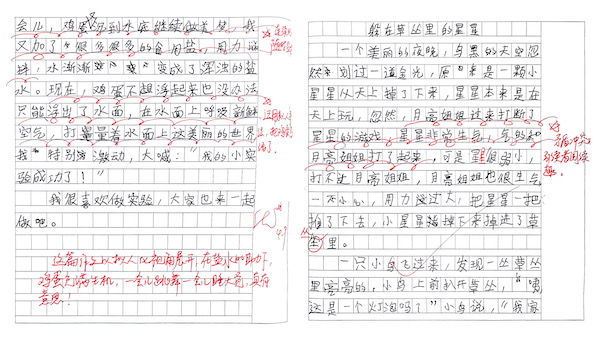 会儿，鸡蛋又沉到水底继续做美梦，我
又加了很多很多的食用盐，用力搅
拌，水渐渐变成了浑浊的盐
水。现在，鸡蛋不想浮起来也没办法
只能浮出了水面，在水面上呼吸新鲜
空气，打量着水面上这美丽的世界
我特别激动，大喊："我的小实
验成功了！"
我很喜欢做实验，大家也来一起
做吧。
这篇作文以拟人化视角展开，在盐水的助力下，
鸡蛋充满生机，一会儿跳舞一会儿睡大觉，真有
意思！
躲在草丛里的星星
一个美丽的夜晚，乌黑的天空忽
然划过一道金光，原来是一颗小
星星从天上掉了下来，星星本来是在
天上玩，忽然，月亮姐姐过来打断了
星星的游戏，星星非常生气，气的和
月亮姐姐打了起来，可是星星很弱小，
打不过月亮姐姐，月亮姐姐也很生气
一不小心，用力过大，把星星一把
推了下去，小星星掉下来掉进了草
丛里。
一只小鸟飞过来，发现一丛草丛
里亮亮的，小鸟上前扒开草丛，"咦
这是一个灯泡吗？"小鸟说，"我家